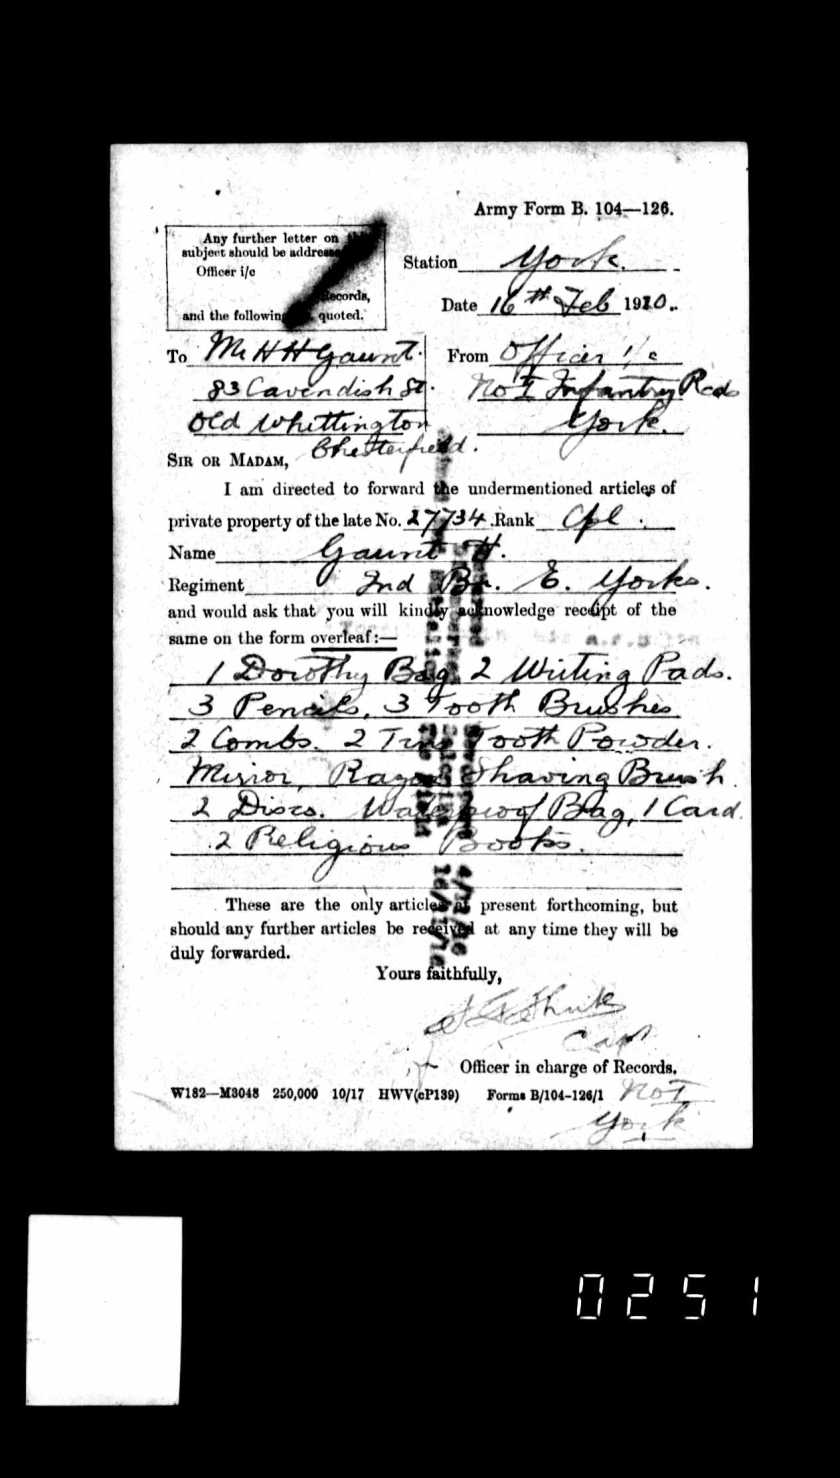 Army Form B. 104—126.
Any further letter on
subject should be addresse
Officer i/c
Records,
and the following quoted.
Station York.
Date 16th Feb 1920.
To Mr H H Gaunt.
83 Cavendish St.
Old Whittington
Chesterfield.
From Officer i/c
No I Infantry Rcds
York.
SIR OR MADAM,
I am directed to forward the undermentioned articles of
private property of the late No. 27734 Rank Cpl.
Name Gaunt H.
Regiment 2nd Bn. E. Yorks.
and would ask that you will kindly acknowledge receipt of the
same on the form overleaf:—
1 Dorothy Bag 2 Writing Pads.
3 Pencils, 3 Tooth Brushes
2 Combs. 2 Tins Tooth Powder.
Mirror, Razor Shaving Brush
2 Discs. Waterproof Bag, 1 Card.
2 Religious Books.
These are the only articles at present forthcoming, but
should any further articles be received at any time they will be
duly forwarded.
Yours faithfully,
Capt
Officer in charge of Records.
No I
York
W182—M3048 250,000 10/17 HWV(cP139) Forms B/104-126/1
0251